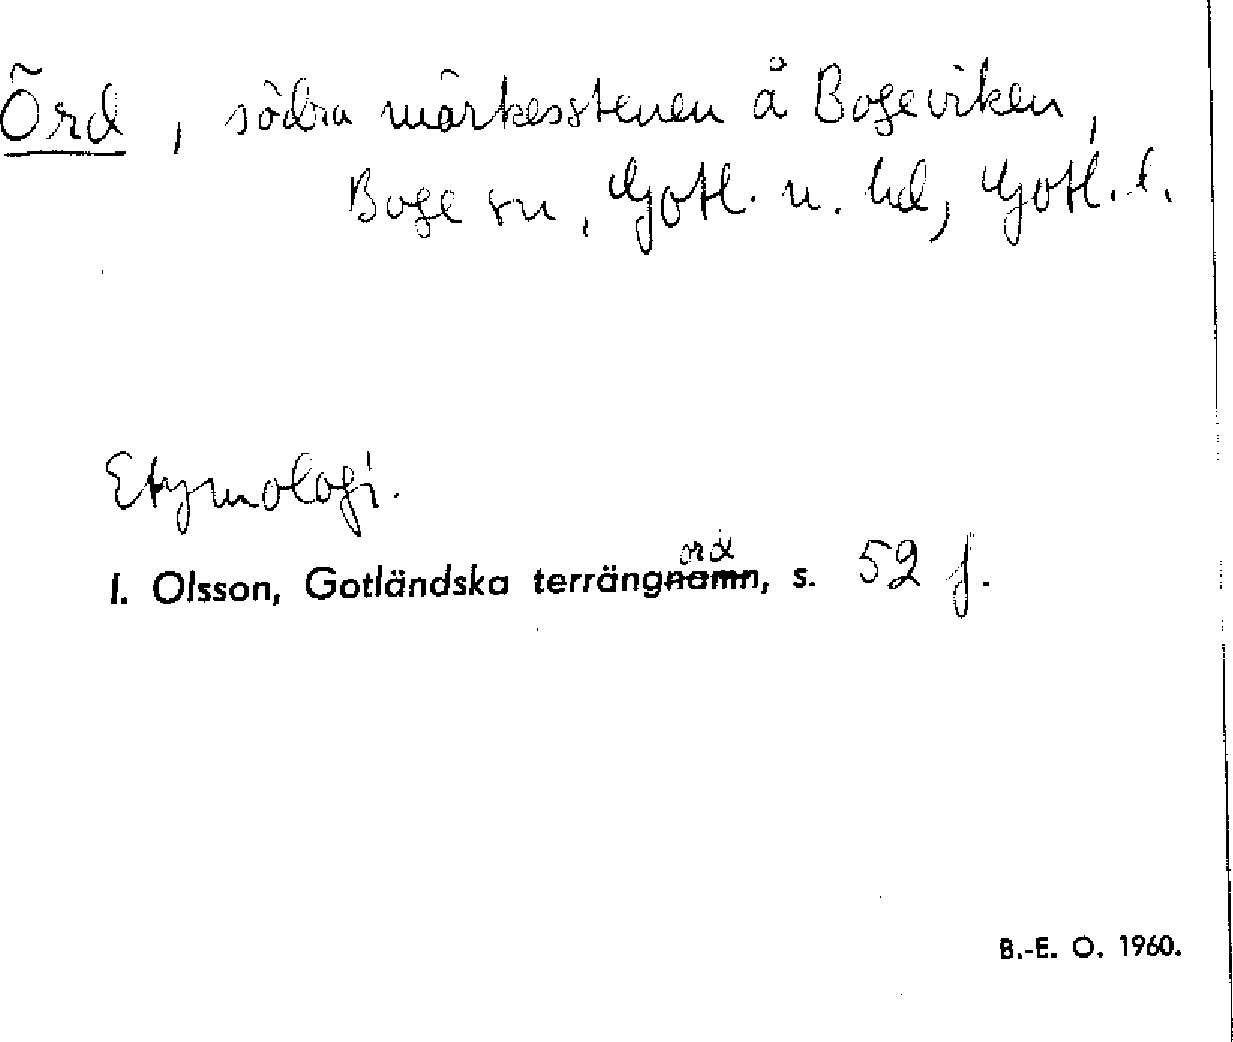 Örd, södra märkesstenen å Bogeviken,
Boge sn, Gotl. n. hd, Gotl. l.
Etymologi.
ord
I. Olsson, Gotländska terrängnamn, s. 52 f.
B.-E. O. 1960.